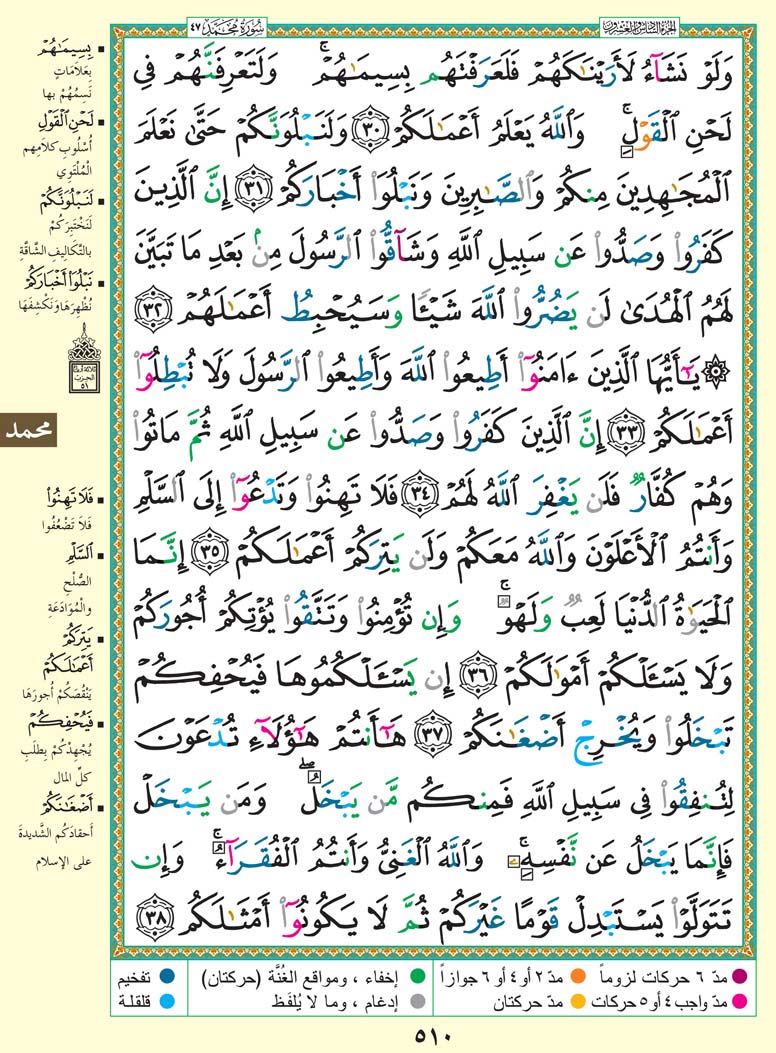 الجزء السادس والعشرون
سورة محمد ٤٧
وَلَوْ نَشَآءُ لَأَرَيْنَٰكَهُمْ فَلَعَرَفْتَهُم بِسِيمَٰهُمْ ۚ وَلَتَعْرِفَنَّهُمْ فِى
لَحْنِ ٱلْقَوْلِ ۚ وَٱللَّهُ يَعْلَمُ أَعْمَٰلَكُمْ ٣٠ وَلَنَبْلُوَنَّكُمْ حَتَّىٰ نَعْلَمَ
ٱلْمُجَٰهِدِينَ مِنكُمْ وَٱلصَّٰبِرِينَ وَنَبْلُوَا۟ أَخْبَارَكُمْ ٣١ إِنَّ ٱلَّذِينَ
كَفَرُوا۟ وَصَدُّوا۟ عَن سَبِيلِ ٱللَّهِ وَشَآقُّوا۟ ٱلرَّسُولَ مِنۢ بَعْدِ مَا تَبَيَّنَ
لَهُمُ ٱلْهُدَىٰ لَن يَضُرُّوا۟ ٱللَّهَ شَيْـًٔا وَسَيُحْبِطُ أَعْمَٰلَهُمْ ٣٢
۞ يَٰٓأَيُّهَا ٱلَّذِينَ ءَامَنُوٓا۟ أَطِيعُوا۟ ٱللَّهَ وَأَطِيعُوا۟ ٱلرَّسُولَ وَلَا تُبْطِلُوٓا۟
أَعْمَٰلَكُمْ ٣٣ إِنَّ ٱلَّذِينَ كَفَرُوا۟ وَصَدُّوا۟ عَن سَبِيلِ ٱللَّهِ ثُمَّ مَاتُوا۟
وَهُمْ كُفَّارٌ فَلَن يَغْفِرَ ٱللَّهُ لَهُمْ ٣٤ فَلَا تَهِنُوا۟ وَتَدْعُوٓا۟ إِلَى ٱلسَّلْمِ
وَأَنتُمُ ٱلْأَعْلَوْنَ وَٱللَّهُ مَعَكُمْ وَلَن يَتِرَكُمْ أَعْمَٰلَكُمْ ٣٥ إِنَّمَا
ٱلْحَيَوٰةُ ٱلدُّنْيَا لَعِبٌ وَلَهْوٌ ۚ وَإِن تُؤْمِنُوا۟ وَتَتَّقُوا۟ يُؤْتِكُمْ أُجُورَكُمْ
وَلَا يَسْـَٔلْكُمْ أَمْوَٰلَكُمْ ٣٦ إِن يَسْـَٔلْكُمُوهَا فَيُحْفِكُمْ
تَبْخَلُوا۟ وَيُخْرِجْ أَضْغَٰنَكُمْ ٣٧ هَٰٓأَنتُمْ هَٰٓؤُلَآءِ تُدْعَوْنَ
لِتُنفِقُوا۟ فِى سَبِيلِ ٱللَّهِ فَمِنكُم مَّن يَبْخَلُ ۖ وَمَن يَبْخَلْ
فَإِنَّمَا يَبْخَلُ عَن نَّفْسِهِۦ ۚ وَٱللَّهُ ٱلْغَنِىُّ وَأَنتُمُ ٱلْفُقَرَآءُ ۚ وَإِن
تَتَوَلَّوْا۟ يَسْتَبْدِلْ قَوْمًا غَيْرَكُمْ ثُمَّ لَا يَكُونُوٓا۟ أَمْثَٰلَكُم ٣٨
بِسِيمَٰهُمْ
بِعَلَامَاتٍ
نَسِمُهُمْ بها
لَحْنِ ٱلْقَوْلِ
أُسْلُوبِ كلامِهم
المُلْتَوِي
لَنَبْلُوَنَّكُمْ
لَنَخْتَبِرَكُمْ
بالتَّكاليفِ الشَّاقَّةِ
نَبْلُوَا۟ أَخْبَارَكُمْ
نُظْهِرَهَا وَنَكْشِفَهَا
ثلاثة أرباع
الحزب
٥١
محمد
فَلَا تَهِنُوا۟
فَلاَ تَضْعُفُوا
ٱلسَّلْمِ
الصُّلْحِ
والمُوَادَعَةِ
يَتِرَكُمْ
أَعْمَٰلَكُمْ
يَنْقُصَكُمْ أُجورَهَا
فَيُحْفِكُمْ
يُجْهِدْكُمْ بِطَلَبِ
كلِّ المال
أَضْغَٰنَكُمْ
أحقادَكُم الشَّديدةَ
على الإسلام
مدّ ٦ حركات لزوماً
مدّ ٢ أو ٤ أو ٦ جوازاً
إخفاء ، ومواقع الغُنَّة (حركتان)
تفخيم
مدّ واجب ٤ أو ٥ حركات
مدّ حركتان
إدغام ، وما لا يُلفَظ
قلقلة
٥١٠